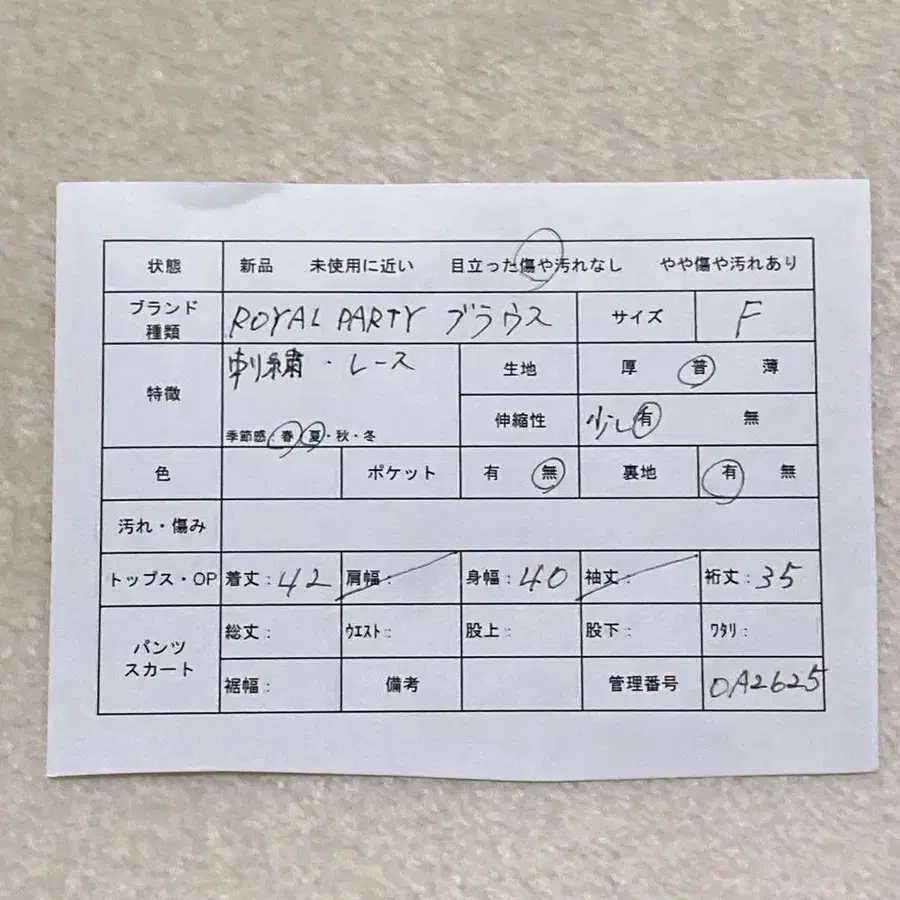 状態 新品 未使用に近い 目立った傷や汚れなし やや傷や汚れあり
ブランド
種類 ROYAL PARTY ブラウス サイズ F
特徴 刺繍・レース 生地 厚 普 薄
季節感:春・夏・秋・冬 伸縮性 少し有 無
色 ポケット 有 無 裏地 有 無
汚れ・傷み
トップス・OP 着丈:42 肩幅: 身幅:40 袖丈: 裄丈:35
パンツ
スカート 総丈: ウエスト: 股上: 股下: ワタリ:
裾幅: 備考 管理番号 OA2625